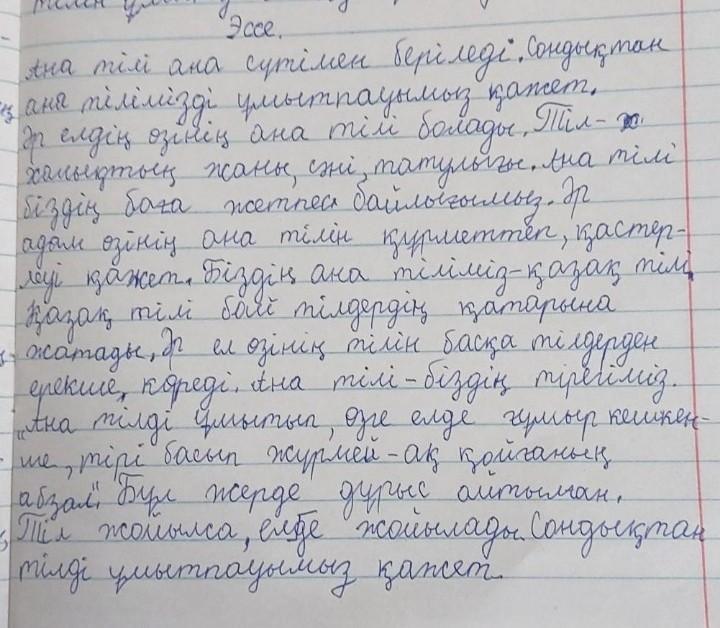 Эссе.
Ана тілі ана сүтімен беріледі. Сондықтан
ана тілімізді ұмытпауымыз қажет.
Әр елдің өзінің ана тілі болады. Тіл-
халықтың жаны, сәні, татулығы. Ана тілі
біздің баға жетпес байлығымыз. Әр
адам өзінің ана тілін құрметтеп, қастер-
леуі қажет. Біздің ана тіліміз-қазақ тілі.
Қазақ тілі бай тілдердің қатарына
жатады, Әр ел өзінің тілін басқа тілдерден
ерекше көреді. Ана тілі-біздің тірегіміз.
"Ана тілді ұмытып, өзге елде ғұмыр кешкен-
ше, тірі басып жүрмей-ақ қойғаның
абзал". Бұл жерде дұрыс айтылған.
Тіл жойылса, елде жойылады. Сондықтан
тілді ұмытпауымыз қажет.